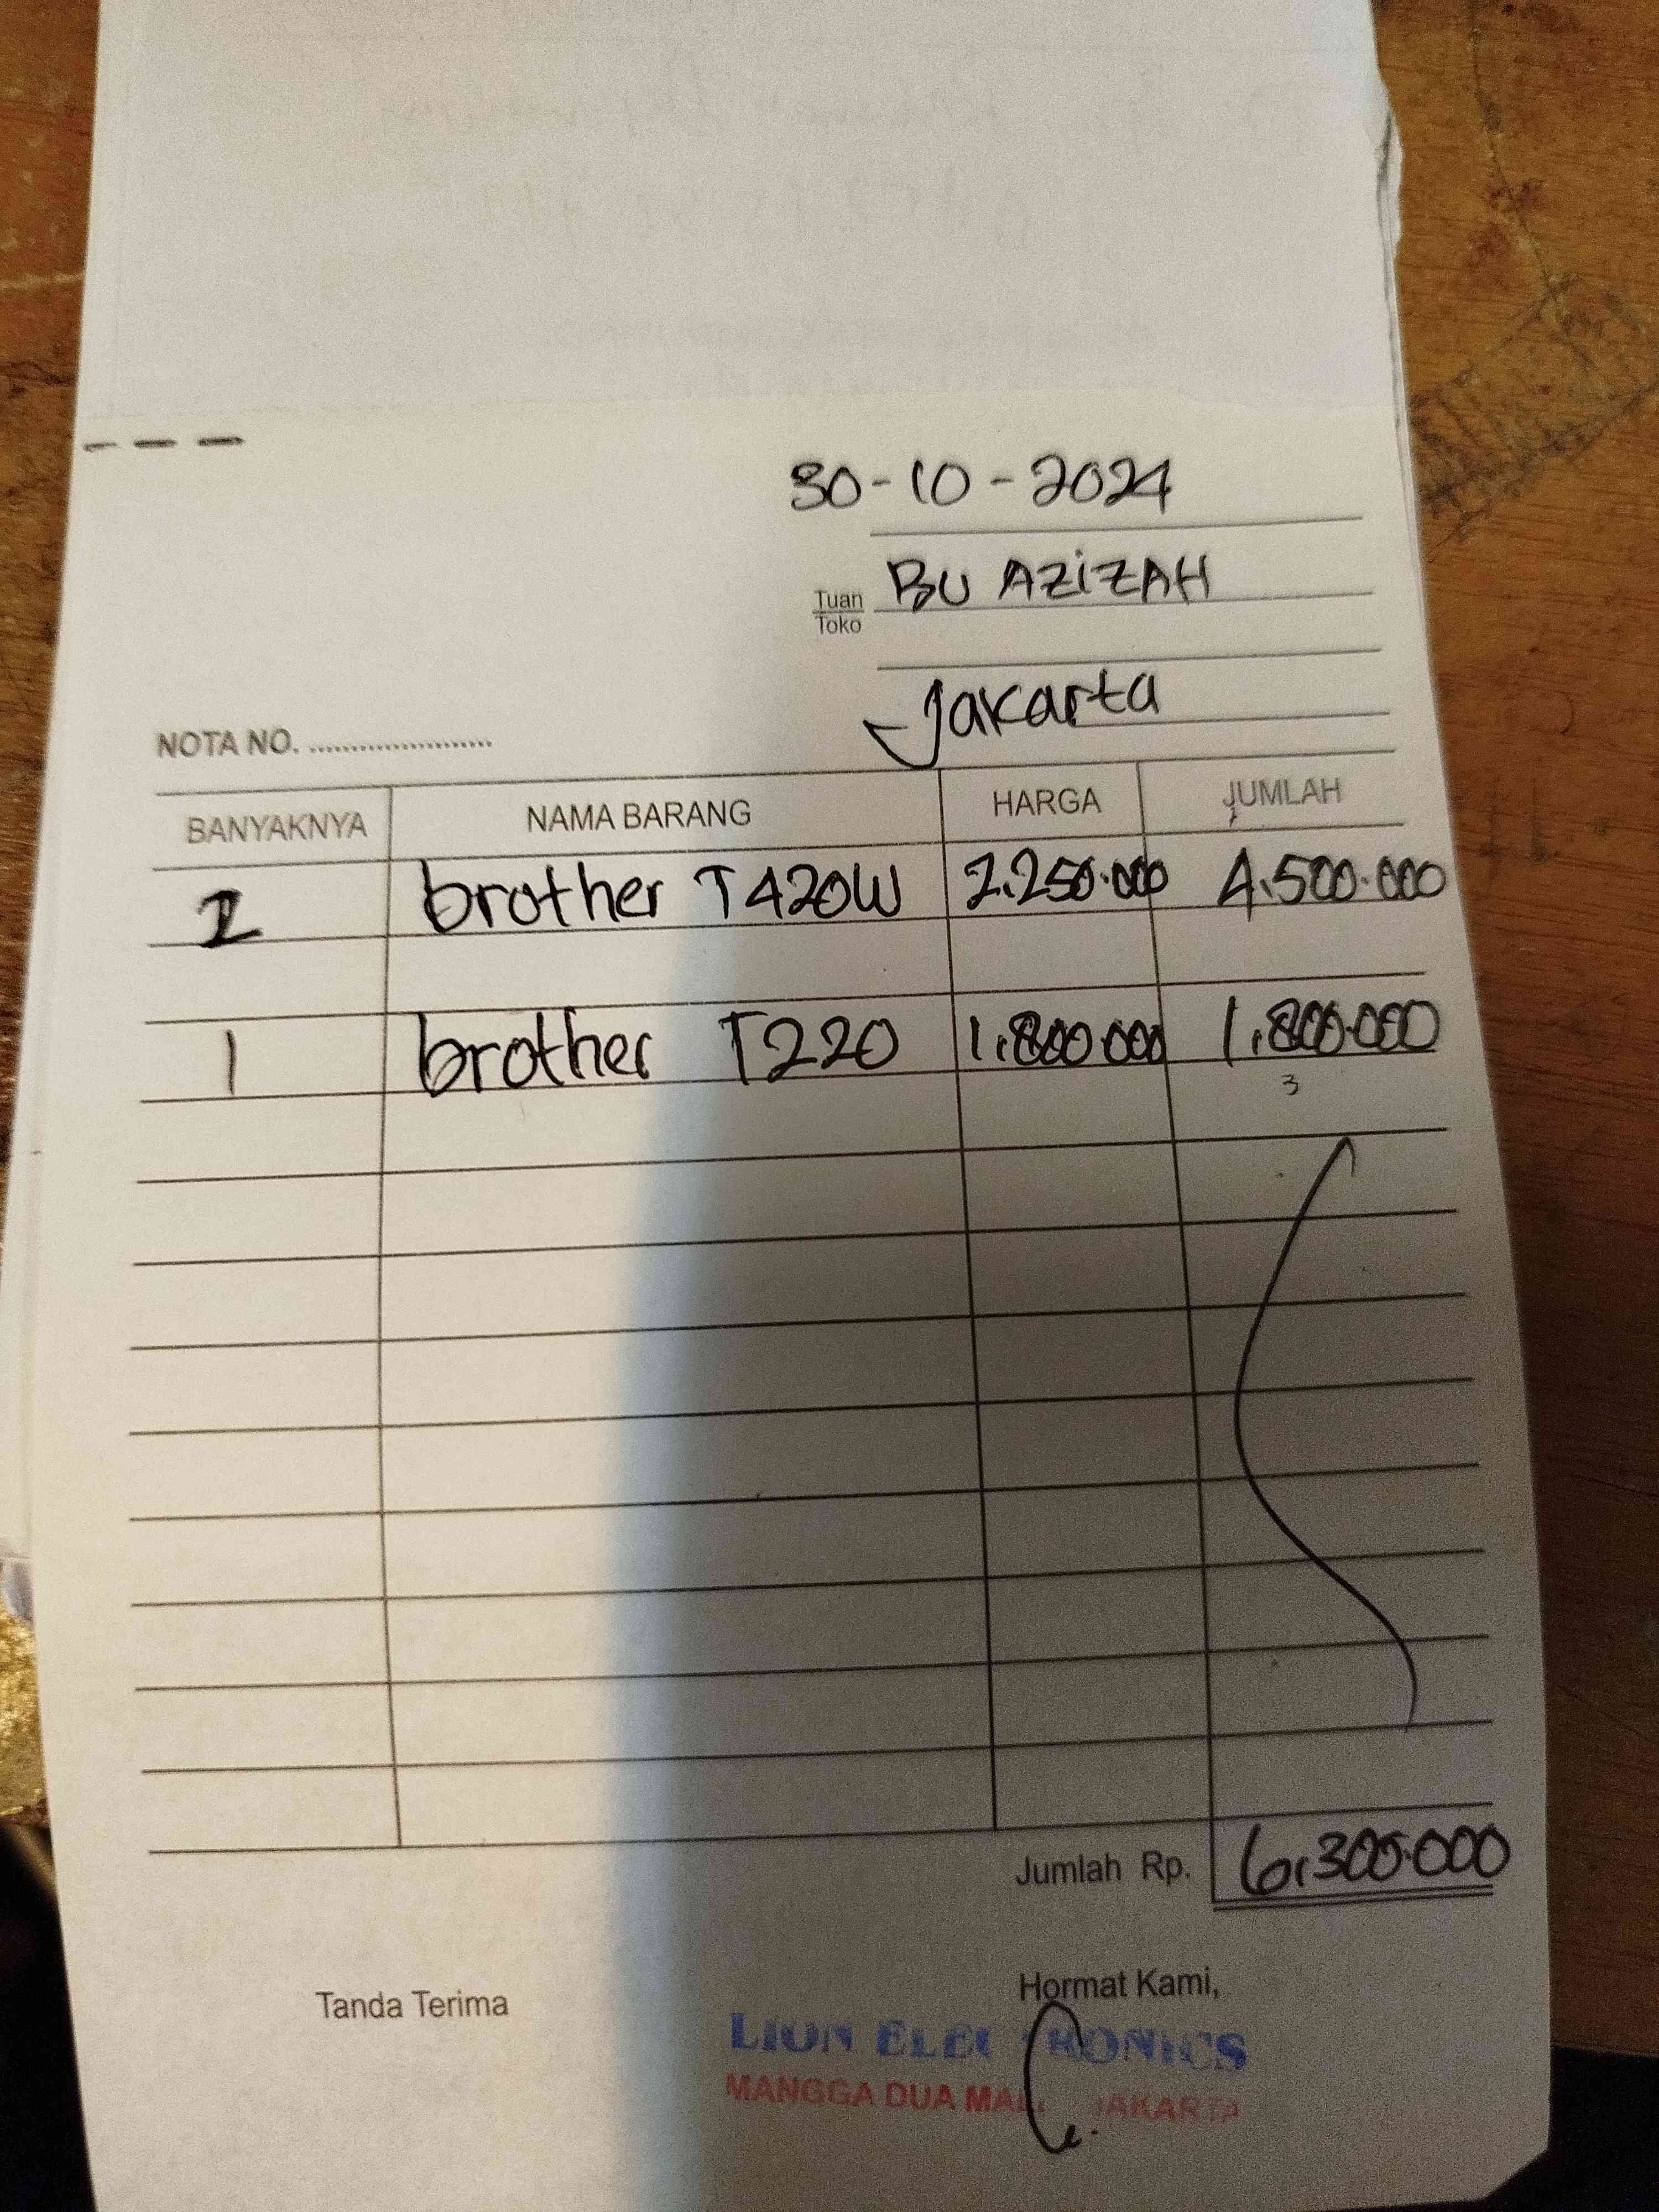 30-10-2024
Tuan
Toko
BU AZIZAH
Jakarta
NOTA NO. ........................
BANYAKNYA NAMA BARANG HARGA JUMLAH
2 brother T420W 2.250.000 4.500.000
1 brother T220 1.800.000 1.800.000
3
Jumlah Rp. 6.300.000
Tanda Terima Hormat Kami,
LION ELECTRONICS
MANGGA DUA MALL JAKARTA